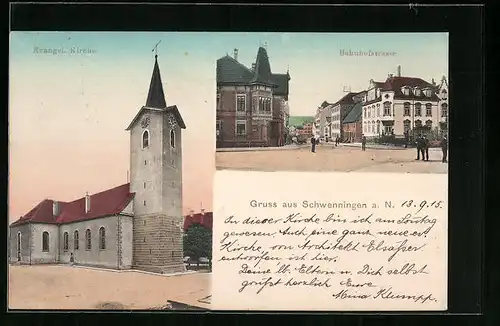 Evangel. Kirche
Bahnhofstrasse
Gruss aus Schwenningen a. N. 13.9.15.
In dieser Kirche bin ich am Sonntag
gewesen. Auch eine ganz neue ev.
Kirche, von Architekt Elsaesser
entworfen ist hier.
Deine lb. Eltern u. Dich selbst
grüsst herzlich Eure
Anna Klumpp